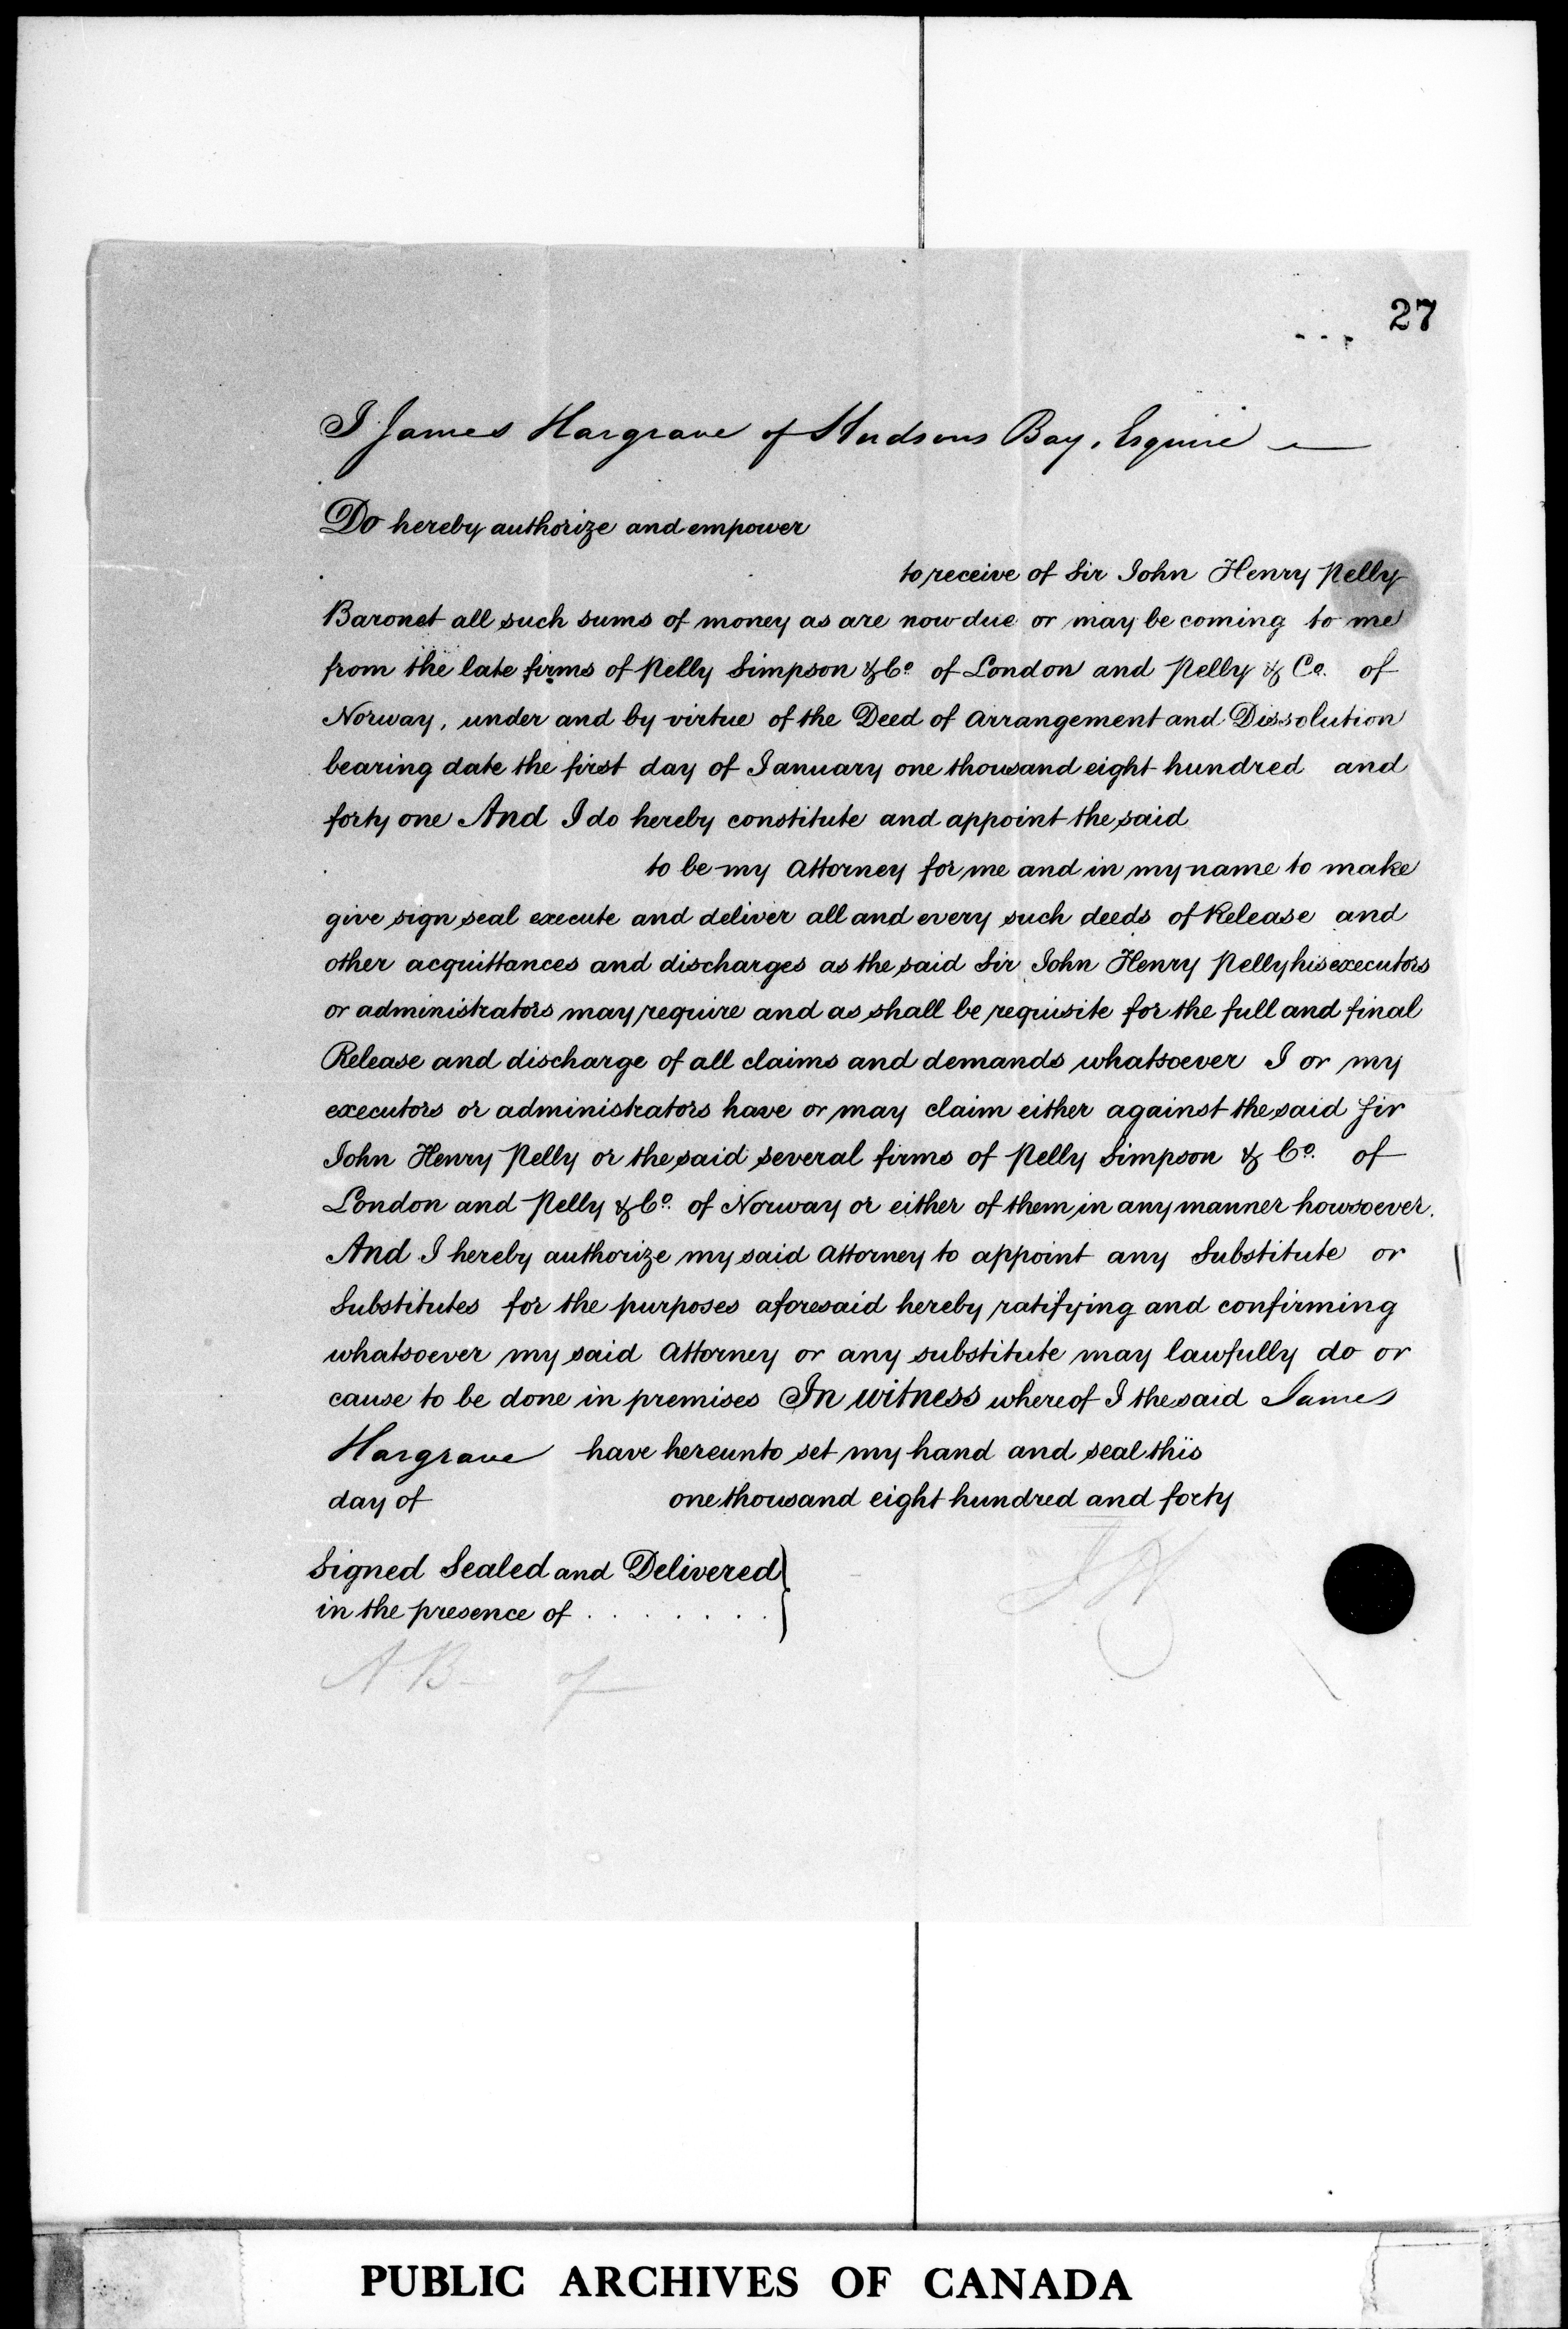 27
I James Hargrave of Hudsons Bay, Esquire
Do hereby authorize and empower
to receive of Sir John Henry Pelly
Baronet all such sums of money as are now due or may be coming to me
from the late firms of Pelly Simpson & Co. of London and Pelly & Co. of
Norway, under and by virtue of the Deed of Arrangement and Dissolution
bearing date the first day of January one thousand eight hundred and
forty one And I do hereby constitute and appoint the said
to be my Attorney for me and in my name to make
give sign seal execute and deliver all and every such deeds of Release and
other acquittances and discharges as the said Sir John Henry Pelly his executors
or administrators may require and as shall be requisite for the full and final
Release and discharge of all claims and demands whatsoever I or my
executors or administrators have or may claim either against the said Sir
John Henry Pelly or the said several firms of Pelly Simpson & Co. of
London and Pelly & Co. of Norway or either of them in any manner howsoever.
And I hereby authorize my said Attorney to appoint any Substitute or
Substitutes for the purposes aforesaid hereby ratifying and confirming
whatsoever my said Attorney or any substitute may lawfully do or
cause to be done in premises In witness whereof I the said James
Hargrave have hereunto set my hand and seal this
day of one thousand eight hundred and forty
Signed Sealed and Delivered }
in the presence of . . . . . . . }
J H
A B - of
PUBLIC ARCHIVES OF CANADA